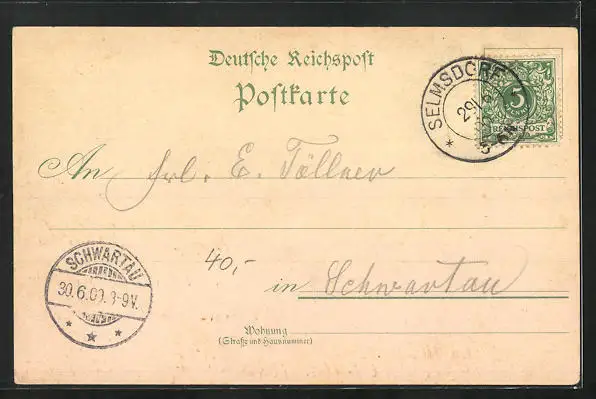 Deutsche Reichspost
Postkarte
SELMSDORF
5
REICHSPOST
An Frl. E. Töllner
SCHWARTAU
30.6.00. 8-9V.
40,-
in Schwartau
Wohnung
(Straße und Hausnummer)